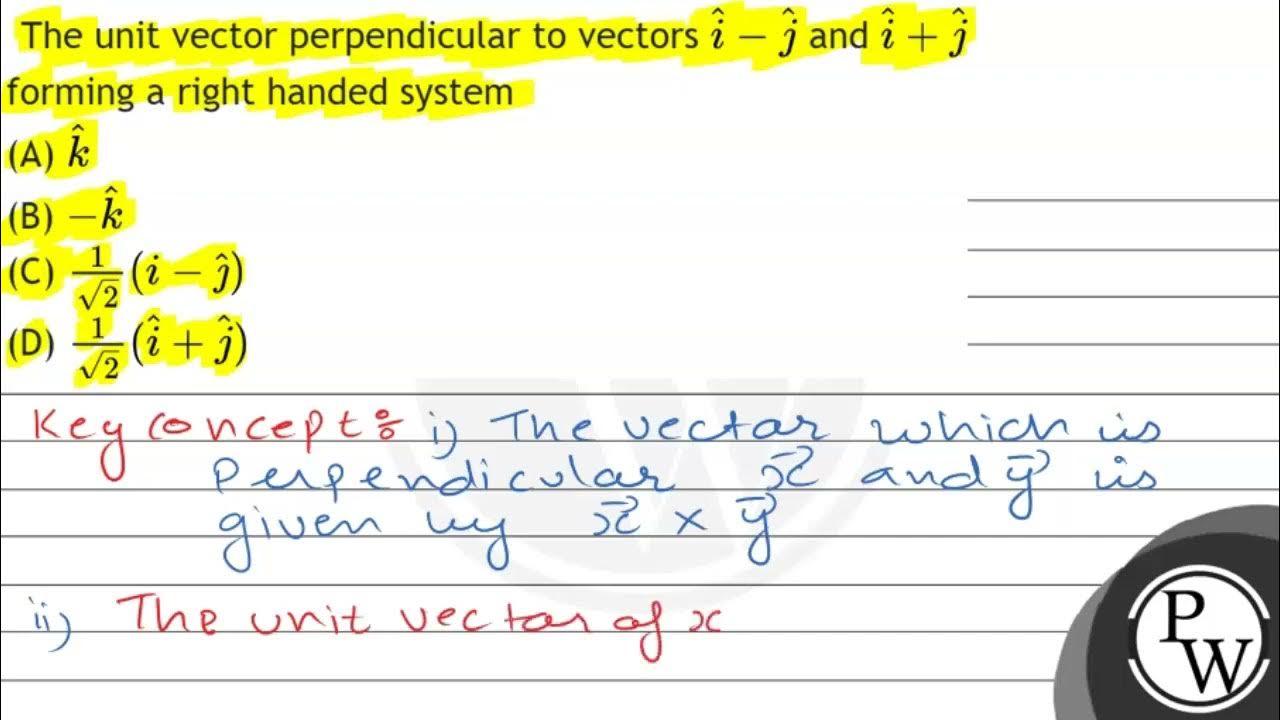 The unit vector perpendicular to vectors î − ĵ and î + ĵ
forming a right handed system
(A) k̂
(B) −k̂
(C) 1/√2 (i − ĵ)
(D) 1/√2 (î + ĵ)
Key concept : i) The vector which is
perpendicular x⃗ and y⃗ is
given by x⃗ × y⃗
ii) The unit vector of x
PW